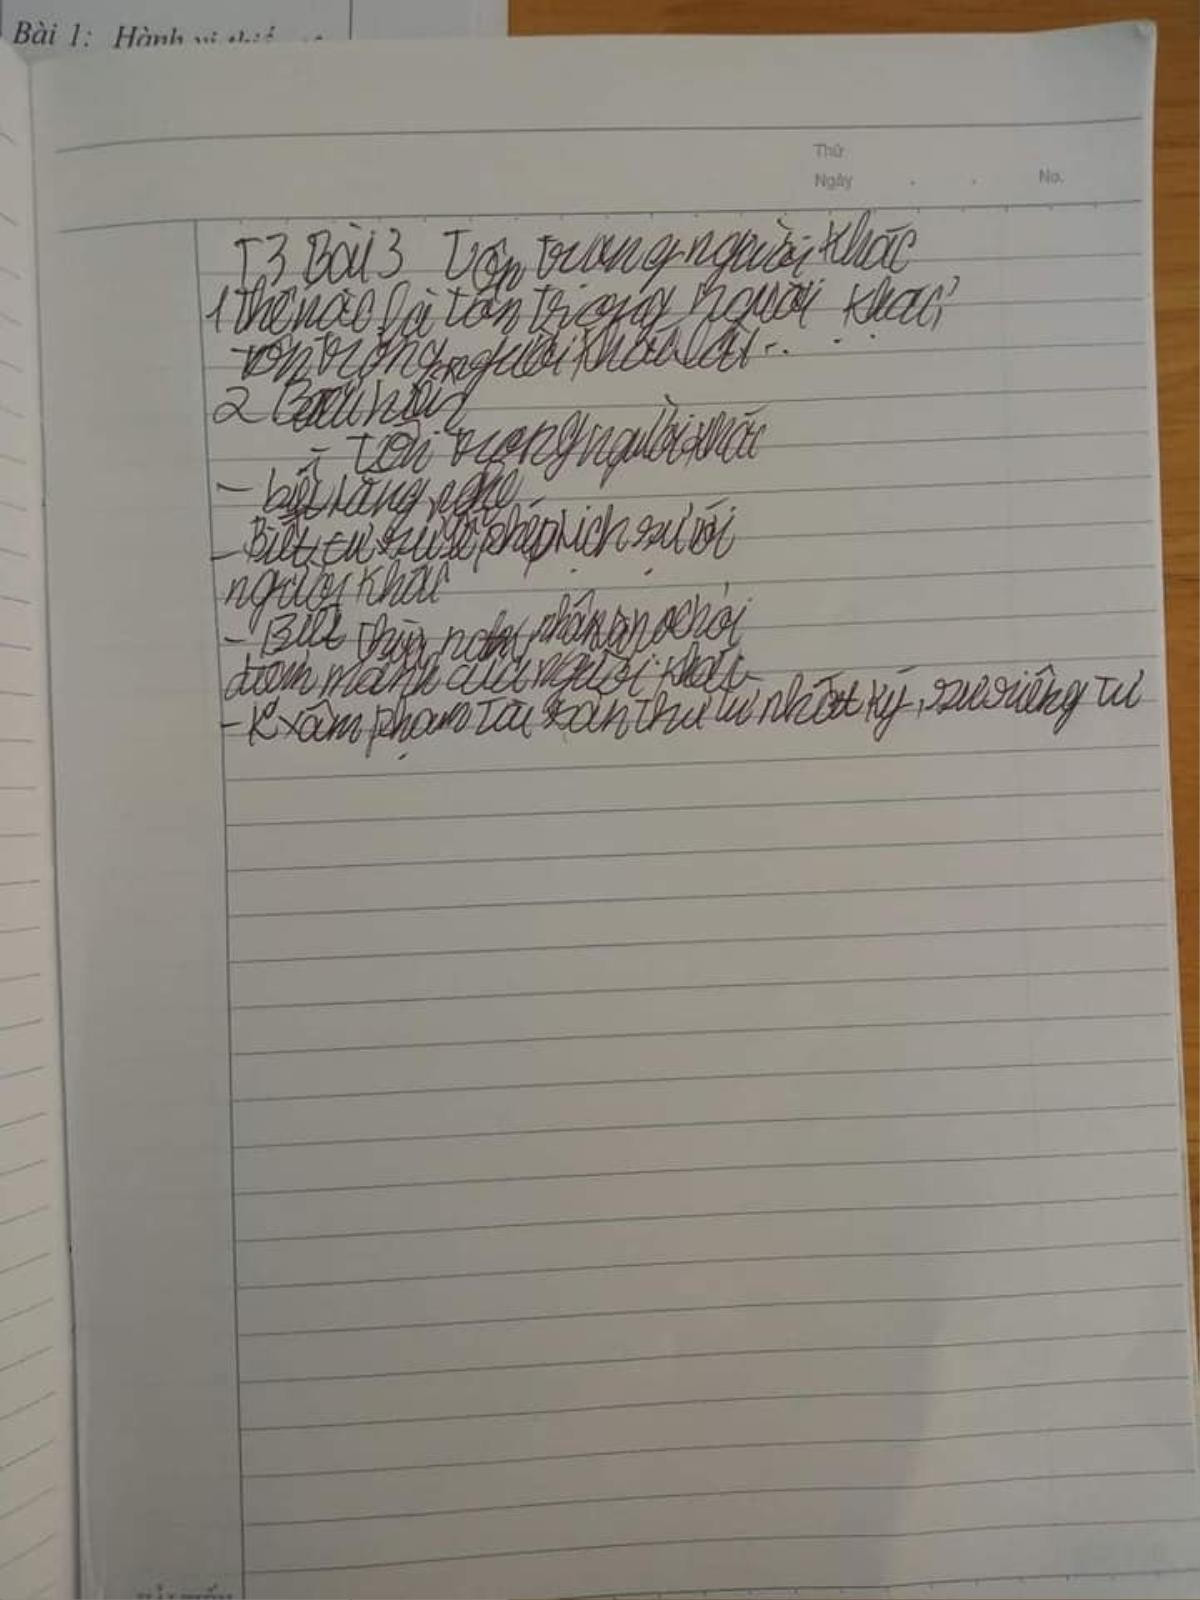 Bài 1: Hành vi
Thứ
Ngày . . No.
T3 Bài 3 Tôn trọng người khác
1 thế nào là tôn trọng người khác?
tôn trọng người khác là . . .
2
- tôn trọng người khác
- biết lắng nghe
- Biết cư xử lễ phép lịch sự với
người khác
- Biết thừa
điểm mạnh của người khác
- K xâm phạm tài sản thư từ nhật ký, sự riêng tư